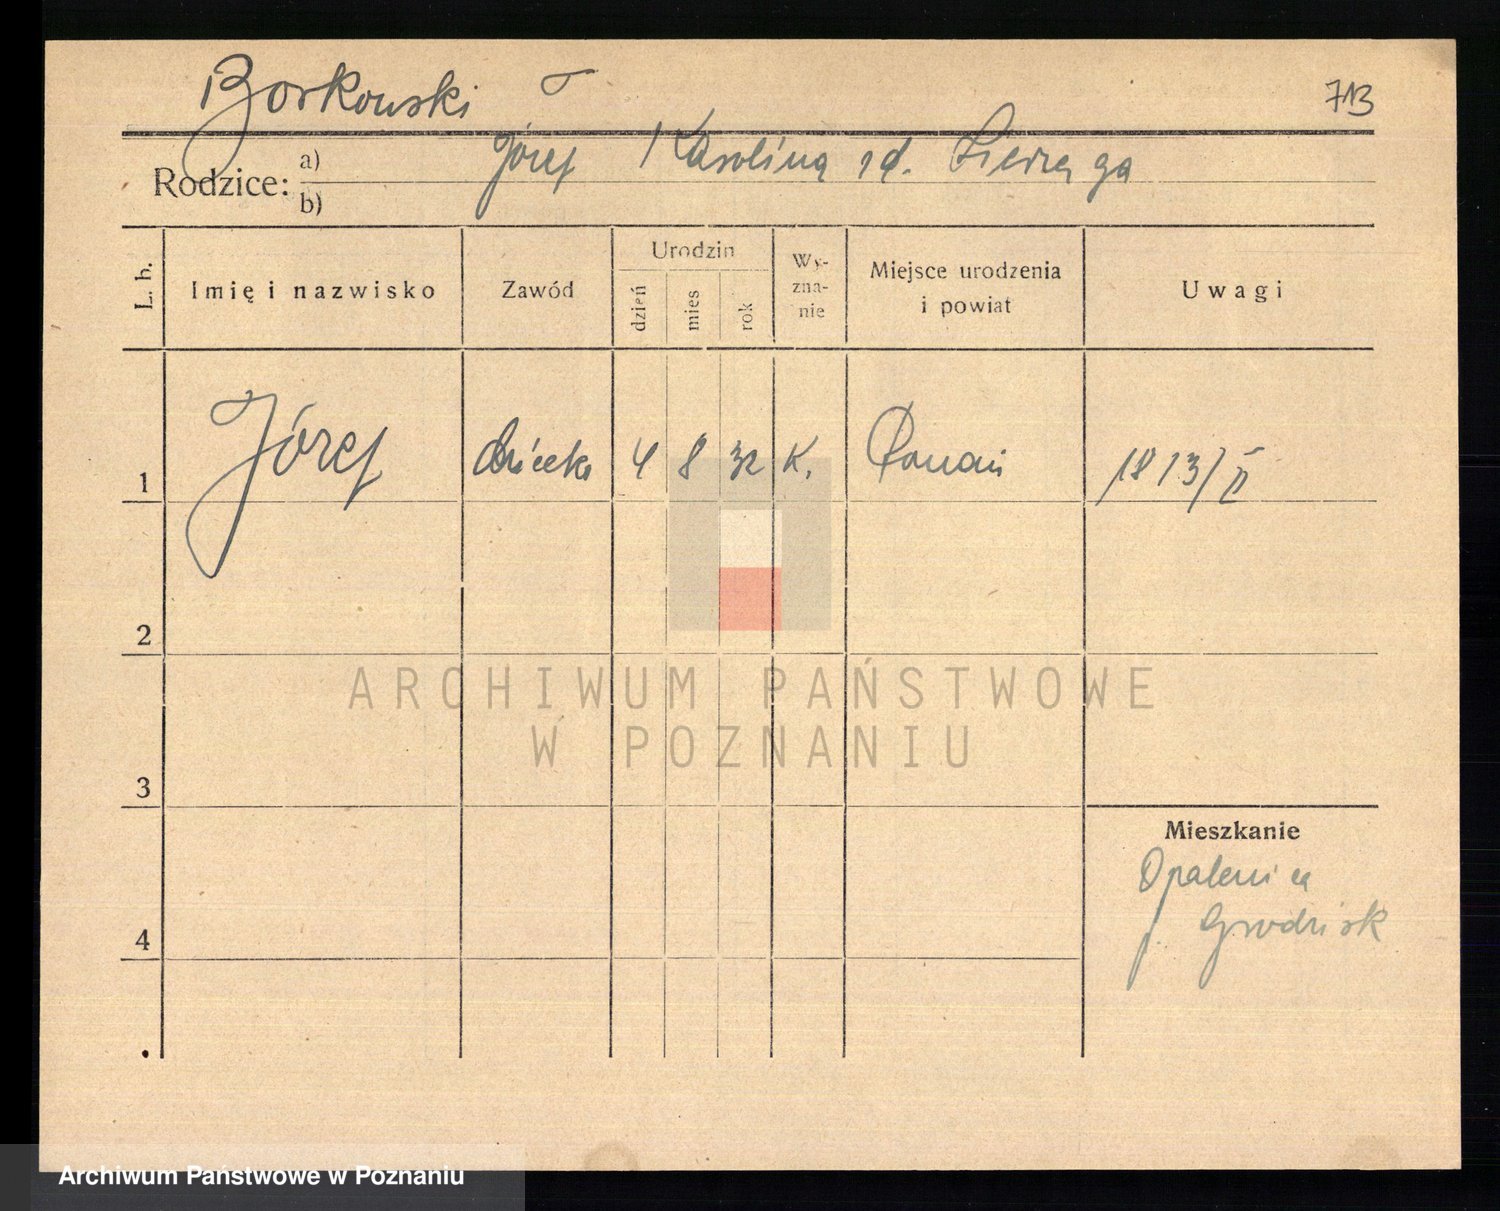 Borkowski J
713
Rodzice: a) Józef / Karolina zd. Sierzęga
b)
L. b. Imię i nazwisko Zawód Urodzin dzień mies rok Wy-zna-nie Miejsce urodzenia i powiat Uwagi
1 Józef dziecko 4 8 32 K. Poznań 1813/II
2
ARCHIWUM PAŃSTWOWE
W POZNANIU
3
Mieszkanie
Opalenica
4
p. Grodzisk
Archiwum Państwowe w Poznaniu